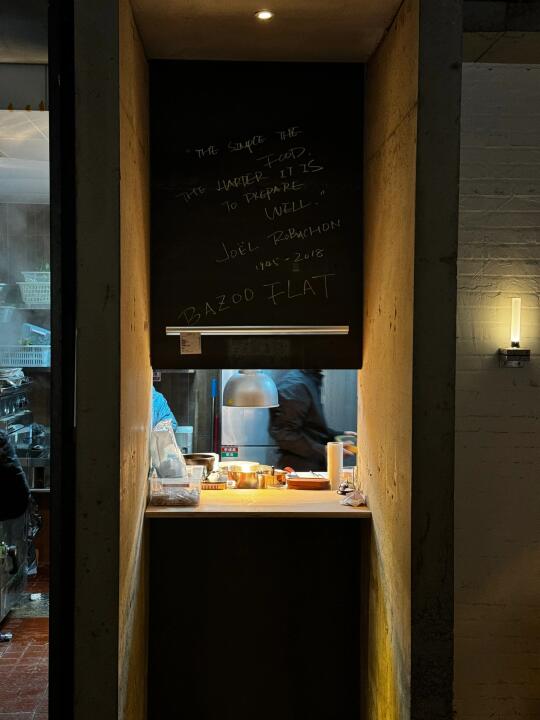 "THE SIMPLE THE
FOOD.
THE HARDER IT IS
TO PREPARE
WELL."
JOËL ROBUCHON
1945-2018
BAZOO FLAT